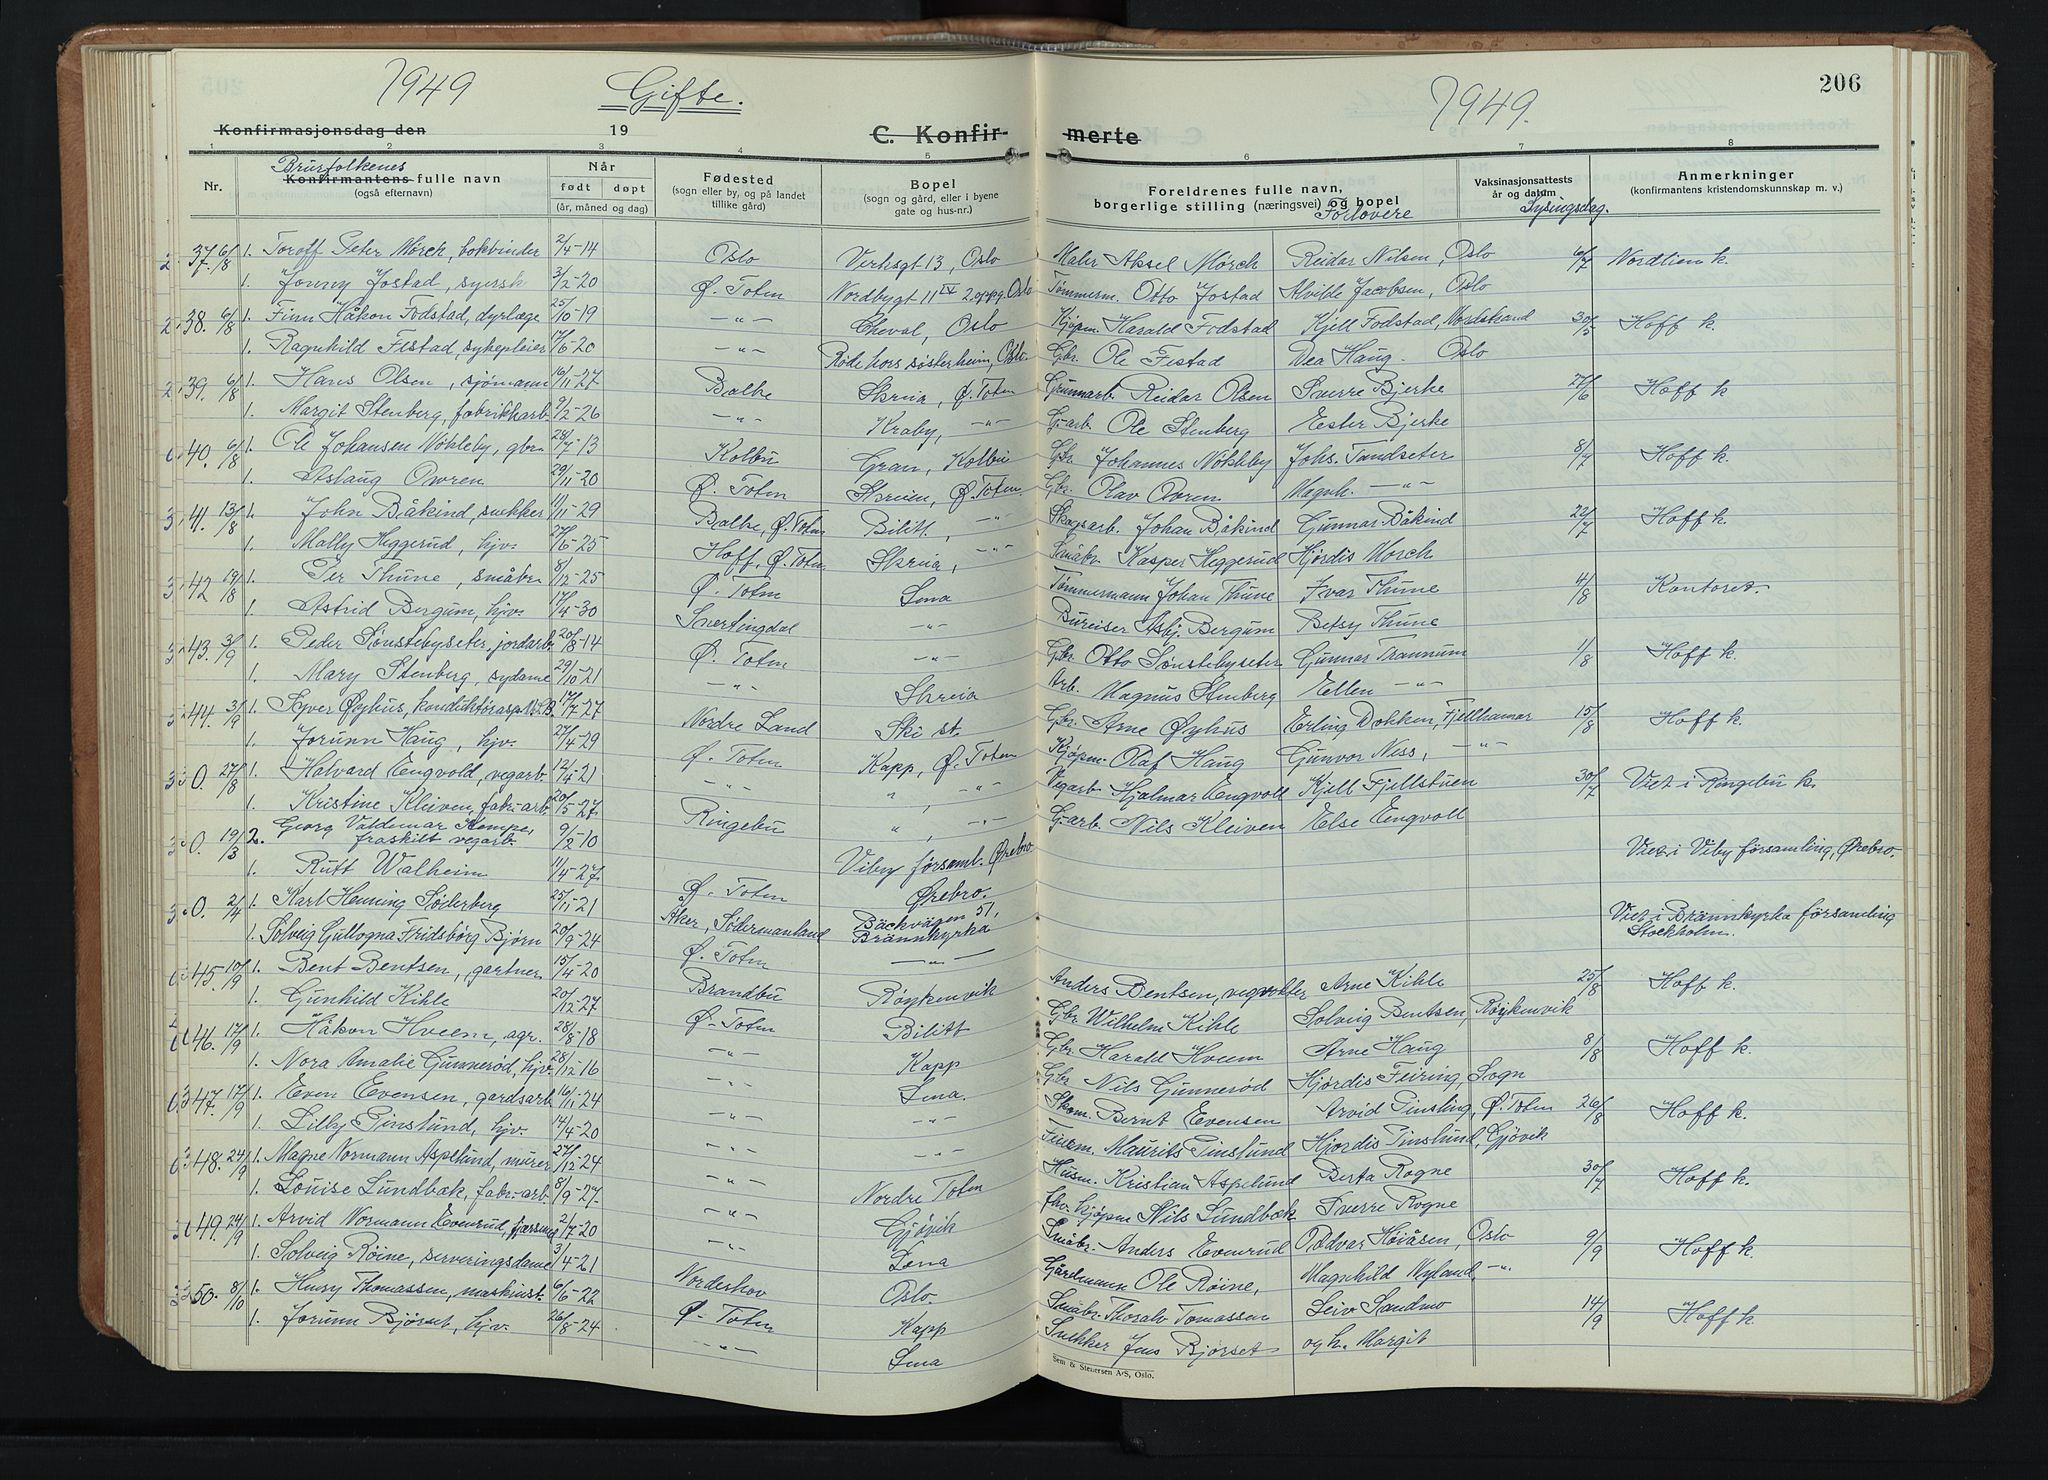 1949 Gifte. 1949. 206
Konfirmasjonsdag den 19 C. Konfir- merte
1 2 3 4 5 6 7 8
Nr. Brurfolkenes Konfirmantens fulle navn (også efternavn)
Når født døpt (år, måned og dag)
Fødested (sogn eller by, og på landet tillike gård)
Bopel (sogn og gård, eller i byene gate og hus-nr.)
Foreldrenes fulle navn, borgerlige stilling (næringsvei) og bopel Forlovere
Vaksinasjonsattests år og datum Lysingsdag.
Anmerkninger (konfirmantens kristendomskunnskap m. v.)
37. 6/8 1. Toroff Peter Mørch, bokbinder 2/4-14 Oslo Vertesgt 13, Oslo Maler Aksel Mørch Reidar Nilsen, Oslo 6/7 Nordlien k.
1. Jenny Jostad, syersk 3/2-20 Ø. Toten Nordbygt 11 IV 2. oppg. Oslo Tømmerm. Otto Jostad Alvilde Jacobsen, Oslo
38. 6/8 1. Finn Håkon Fodstad, dyrlæge 25/10-19 -"- Cheval, Oslo Kjøpm. Harald Fodstad Kjell Fodstad, Nordstrand 30/5 Hoff k.
1. Ragnhild Festad, sykepleier 17/6-20 -"- Røde kors søsterheim, Oslo Gbr. Ole Festad Dea Haug. Oslo
39. 6/8 1. Hans Olsen, sjømann 16/11-27 Balke Skreia, Ø. Toten Grunnarb. Reidar Olsen Sverre Bjerke 27/6 Hoff k.
1. Margit Stenberg, fabrikkarb. 9/2-26 -"- Kraby, -"- G-arb. Ole Stenberg Ester Bjerke
40. 6/8 1. Ole Johansen Nøkleby, gbr. 28/7-13 Kolbu Gran, Kolbu Gbr. Johannes Nøkleby Johs. Tandseter 8/7 Hoff k.
1. Aslaug Ovren 29/11-20 Ø. Toten Skreien, Ø. Toten. Gbr. Olav Ovren Magnh. -"-
41. 13/8 1. John Båkind, snekker 11/11-29 Balke, Ø. Toten Bilitt, -"- Skogsarb. Johan Båkind Gunnar Båkind 22/7 Hoff k.
1. Molly Heggerud, hjv. 27/6-25 Hoff, Ø. Toten Skreia, -"- Småbr. Kasper Heggerud Hjørdis Morch
42 19/8 1. Per Thune, småbr. 8/12-25 Ø. Toten Lena Tømmermann Johan Thune Ivar Thune 4/8 Kontoret.
1. Astrid Bergum, hjv. 17/4-30 Snertingdal -"- Bureiser Asbj. Bergum Betsy Thune
43. 3/9 1. Peder Sønstebyseter, jordarb. 20/8-14 Ø. Toten -"- Gbr. Otto Sønstebyseter Gunnar Trannum 1/8 Hoff k.
1. Mary Stenberg, sydame 29/10-21 -"- Skreia Arb. Magnus Stenberg Ellen -"-
44. 3/9 1. Syver Øyhus, konduktørasp. N.S.B. 17/7-27 Nordre Land Ski st. Gbr. Arne Øyhus Erling Dokken, Fjellhamar 15/8 Hoff k.
1. Jorunn Haug, hjv. 27/4-29 Ø. Toten Kapp, Ø. Toten Kjøpm. Olaf Haug Gunvor Niss, -"-
0. 27/8 1. Halvard Engvold, vegarb. 12/4-21 -"- ", -"- Vegarb. Hjalmar Engvoll Kjell Fjellstuen 30/7 Viet i Ringebu k.
1. Kristine Kleiven, fabr-arb 20/5-27. Ringebu ", -"- G-arb. Nils Kleiven Else Engvoll
0. 19/3 2. Georg Valdemar Kempe, fraskilt vegarb. 9/2-10 Viby församl. Ørebro Viet i Viby församling, Ørebro.
1. Rutt Walheim 11/4-27. Ø. Toten Ørebro.
0. 2/4 1. Karl Henning Søderberg 25/11-21 Aker, Södermanland Bäckvägen 51, Brännkyrka Viet i Brännkyrka församling Stockholm.
1. Solveig Gullogna Fridsborg Bjørn 20/9-24 Ø. Toten -"-
45 10/9 1. Bent Bentsen, gartner 15/4-20 Brandbu Røykenvik Anders Bentsen, vegvokter Arne Kihle 25/8 Hoff k.
1. Gunhild Kihle 20/12-27 Ø. Toten Bilitt Gbr. Wilhelm Kihle Solveig Bentsen, Røykenvik
46. 17/9 1. Håkon Hveem, agr. 28/8-18 -"- Kapp Gbr. Harald Hveem Arne Haug 8/8 Hoff k.
1. Nora Amalie Gunnerød, hjv. 28/12-16 -"- Lena. Gbr. Nils Gunnerød Hjørdis Feiring, Sogn
47. 17/9 1. Even Evensen, gardsarb 16/11-24 -"- -"- Skom. Bernt Evensen Arvid Pinsling, Ø. Toten 26/8 Hoff k.
1. Lilly Pinslund, hjv. 14/4-20 -"- -"- Feierm. Maurits Pinslund Hjordis Pinslund, Gjøvik
48. 24/9 1. Magne Normann Asplund, murer 27/12-24 -"- Nordre Toten Husm. Kristian Asplund Berta Rogne 30/7 Hoff k.
1. Louise Lundbæk, fabr-arb. 8/9-27. -"- Gjøvik fhv. kjøpm Nils Lundbæk Sverre Rogne
49. 24/9 1. Arvid Normann Evenrud, 2/7-20 -"- Lena Småbr. Anders Evenrud Oddvar Høiåsen, Oslo 9/9 Hoff k.
1. Solveig Røine, serveringsdame 3/4-21 Norderhov Oslo. Gårdmann Ole Røine, Magnhild Nyland, -"-
50. 8/10 1. Henry Thomassen, maskinist. 6/6-22 Ø. Toten Kapp Småbr. Thoralv Tomassen Leiv Sandmo 14/9 Hoff k.
1. Jorunn Bjørset, hjv. 26/8-24 -"- Lena Snekker Jens Bjørset og h. Margit
Sem & Stenersen A/S, Oslo.